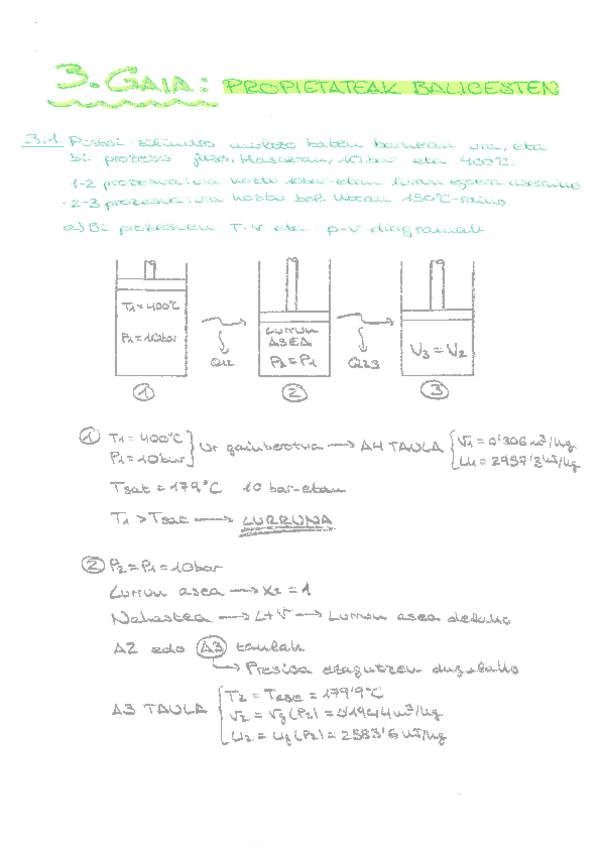 3. GAIA: PROPIETATEAK BALIOESTEN
3.1 Pistoi-zilindro multzo baten barnean ura, eta
bi prozesu jasan. Hasieran, 10 bar eta 400°C.
· 1-2 prozesua: ura hoztu 10 bar-etan lurrun egoera aseraino
· 2-3 prozesua: ura hoztu bol. ktean 150°C-raino.
a) Bi prozesuen T-V eta p-V diagramak.
T1 = 400°C
P1 = 10bar
Q12
LURRUN
ASEA
P2 = P1
Q23
V3 = V2
1 2 3
1 T1 = 400°C
P1 = 10bar
Ur gainberotua → A4 TAULA
V1 = 0'306 m³/kg
U1 = 2957'3 kJ/kg
Tsat = 179°C 10 bar-etan
T1 > Tsat → LURRUNA
2 P2 = P1 = 10bar
Lurrun asea → X2 = 1
Nahastea → L+V → Lurrun asea
A2 edo A3 taulak
→ Presioa ezagutzen
A3 TAULA
T2 = Tsat = 179'9°C
V2 = Vg (P2) = 0'1944 m³/kg
U2 = Ug (P2) = 2583'6 kJ/kg